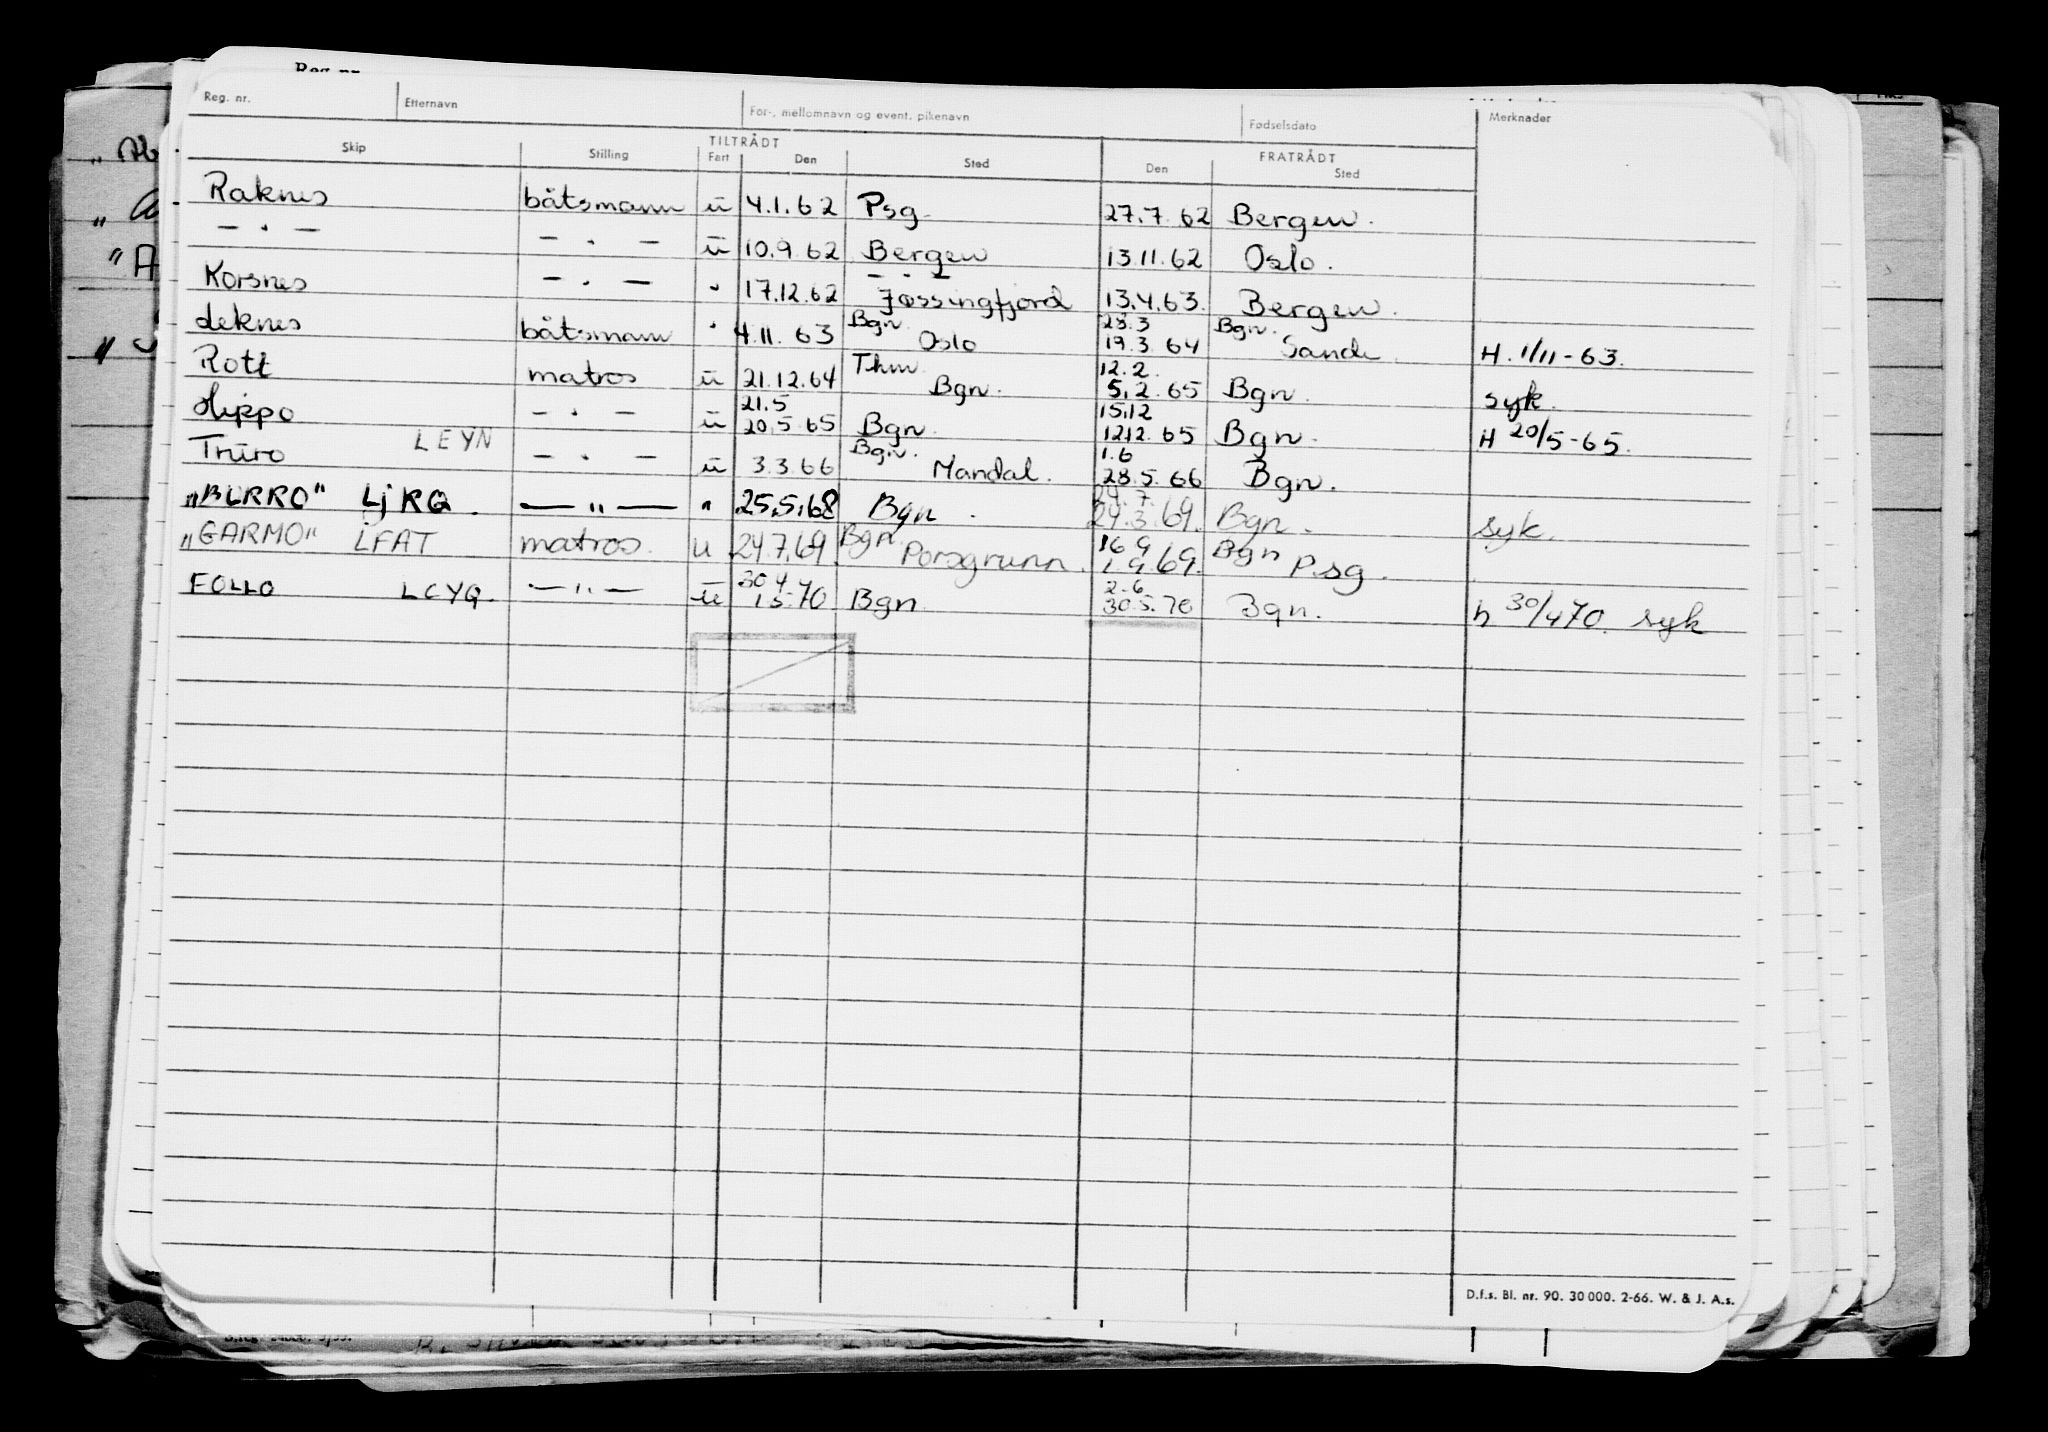 Reg. nr.
Reg. nr. Etternavn For-, mellomnavn og event. pikenavn Fødselsdato Merknader
TILTRÅDT FRATRÅDT
Skip Stilling Fart Den Sted Den Sted
Raknes båtsmann u 4.1.62 Psg. 27.7.62 Bergen.
— . — — . — u 10.9.62 Bergen 13.11.62 Oslo.
— . —
Korsnes — . — " 17.12.62 Jøssingfjord 13.4.63. Bergen.
Bgn. 28.3 Bgn.
Leknes båtsmann " 4.11.63 Oslo 19.3.64 Sande. H. 1/11-63.
Thm. 12.2.
Rott matros u 21.12.64 Bgn. 5.2.65 Bgn. syk.
21.5 15.12
Hippo — . — u 20.5.65 Bgn. 12.12.65 Bgn. H 20/5-65.
Bgn. 1.6
Truro LEYN — . — u 3.3.66 Mandal. 28.5.66 Bgn.
24.7.
"BURRO" LjRG. — " — " 25.5.68 Bgn. 24.3.69. Bgn. syk.
Bgn. 16 9 Bgn
"GARMO" LFAT matros. u 24.7.69. Porsgrunn. 1 9.69. P.sg.
30 4 2-6
FOLLO LCYQ. — " — u 1 5.70 Bgn 30.5.70 Bgn. h 30/4 70. syk
D.f.s. Bl. nr. 90. 30 000. 2-66. W. & J. A.s.